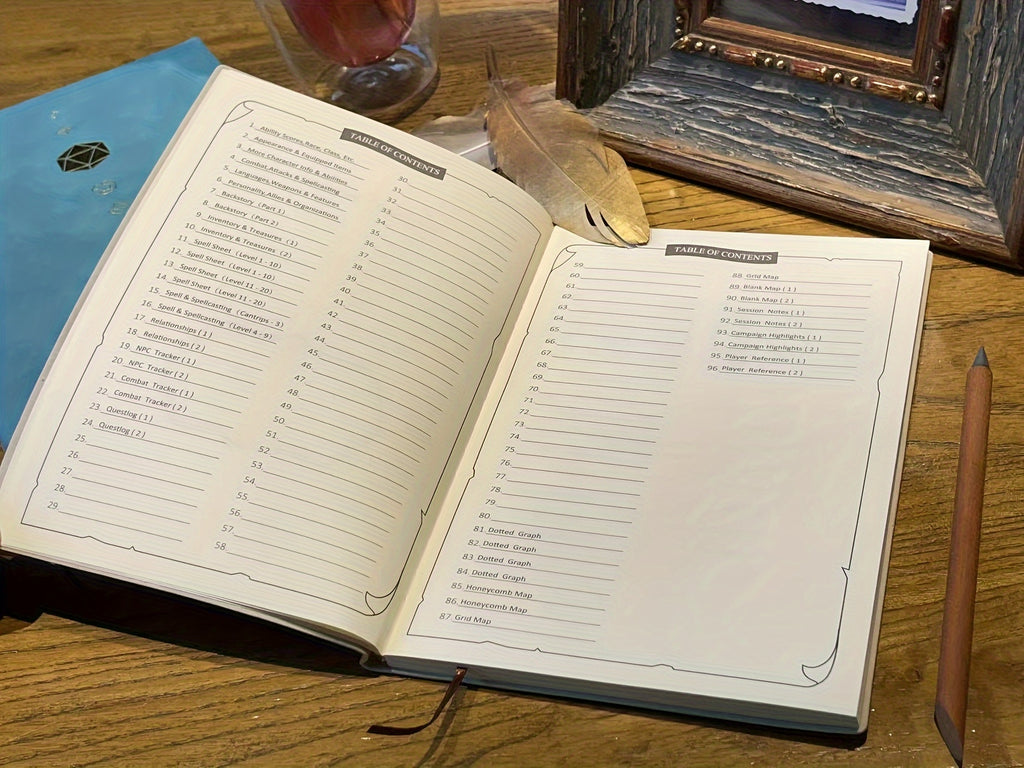 TABLE OF CONTENTS
1. Ability Scores, Race, Class, Etc.
2. Appearance & Equipped Items
3. More Character Info & Abilities
4. Combat, Attacks & Spellcasting
5. Languages, Weapons & Features
6. Personality, Allies & Organizations
7. Backstory (Part 1)
8. Backstory (Part 2)
9. Inventory & Treasures (1)
10. Inventory & Treasures (2)
11. Spell Sheet (Level 1 - 10)
12. Spell Sheet (Level 1 - 10)
13. Spell Sheet (Level 11 - 20)
14. Spell Sheet (Level 11 - 20)
15. Spell & Spellcasting (Cantrips - 3)
16. Spell & Spellcasting (Level 4 - 9)
17. Relationships ( 1 )
18. Relationships ( 2 )
19. NPC Tracker ( 1 )
20. NPC Tracker ( 2 )
21. Combat Tracker ( 1 )
22. Combat Tracker ( 2 )
23. Questlog ( 1 )
24. Questlog ( 2 )
25.
26.
27.
28.
29.
30.
31.
32.
33.
34.
35.
36.
37.
38.
39.
40.
41.
42.
43.
44.
45.
46.
47.
48.
49.
50.
51.
52.
53.
54.
55.
56.
57.
58.
TABLE OF CONTENTS
59.
60.
61.
62.
63.
64.
65.
66.
67.
68.
69.
70.
71.
72.
73.
74.
75.
76.
77.
78.
79.
80.
81. Dotted Graph
82. Dotted Graph
83. Dotted Graph
84. Dotted Graph
85. Honeycomb Map
86. Honeycomb Map
87. Grid Map
88. Grid Map
89. Blank Map ( 1 )
90. Blank Map ( 2 )
91. Session Notes ( 1 )
92. Session Notes ( 2 )
93. Campaign Highlights ( 1 )
94. Campaign Highlights ( 2 )
95. Player Reference ( 1 )
96. Player Reference ( 2 )